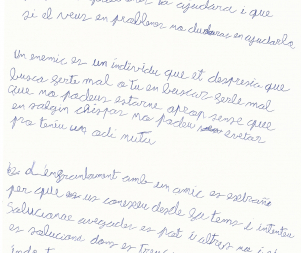 sa ayudara i que
si el veus en problems no dudaras en ayudarlo
Un enemic es un individu que et despresia que
busca serte mal o tu en buscar serle mal
que no podeu estarne aprop sense que
en salgin chispas no podeu evetar
pro teniu un odi mutu
es d'engruntament amb un amic es extraño
per que us coneixeu desde fa tems i intenteu
Solucionar avegades es pot i altres no
es solucions dons es